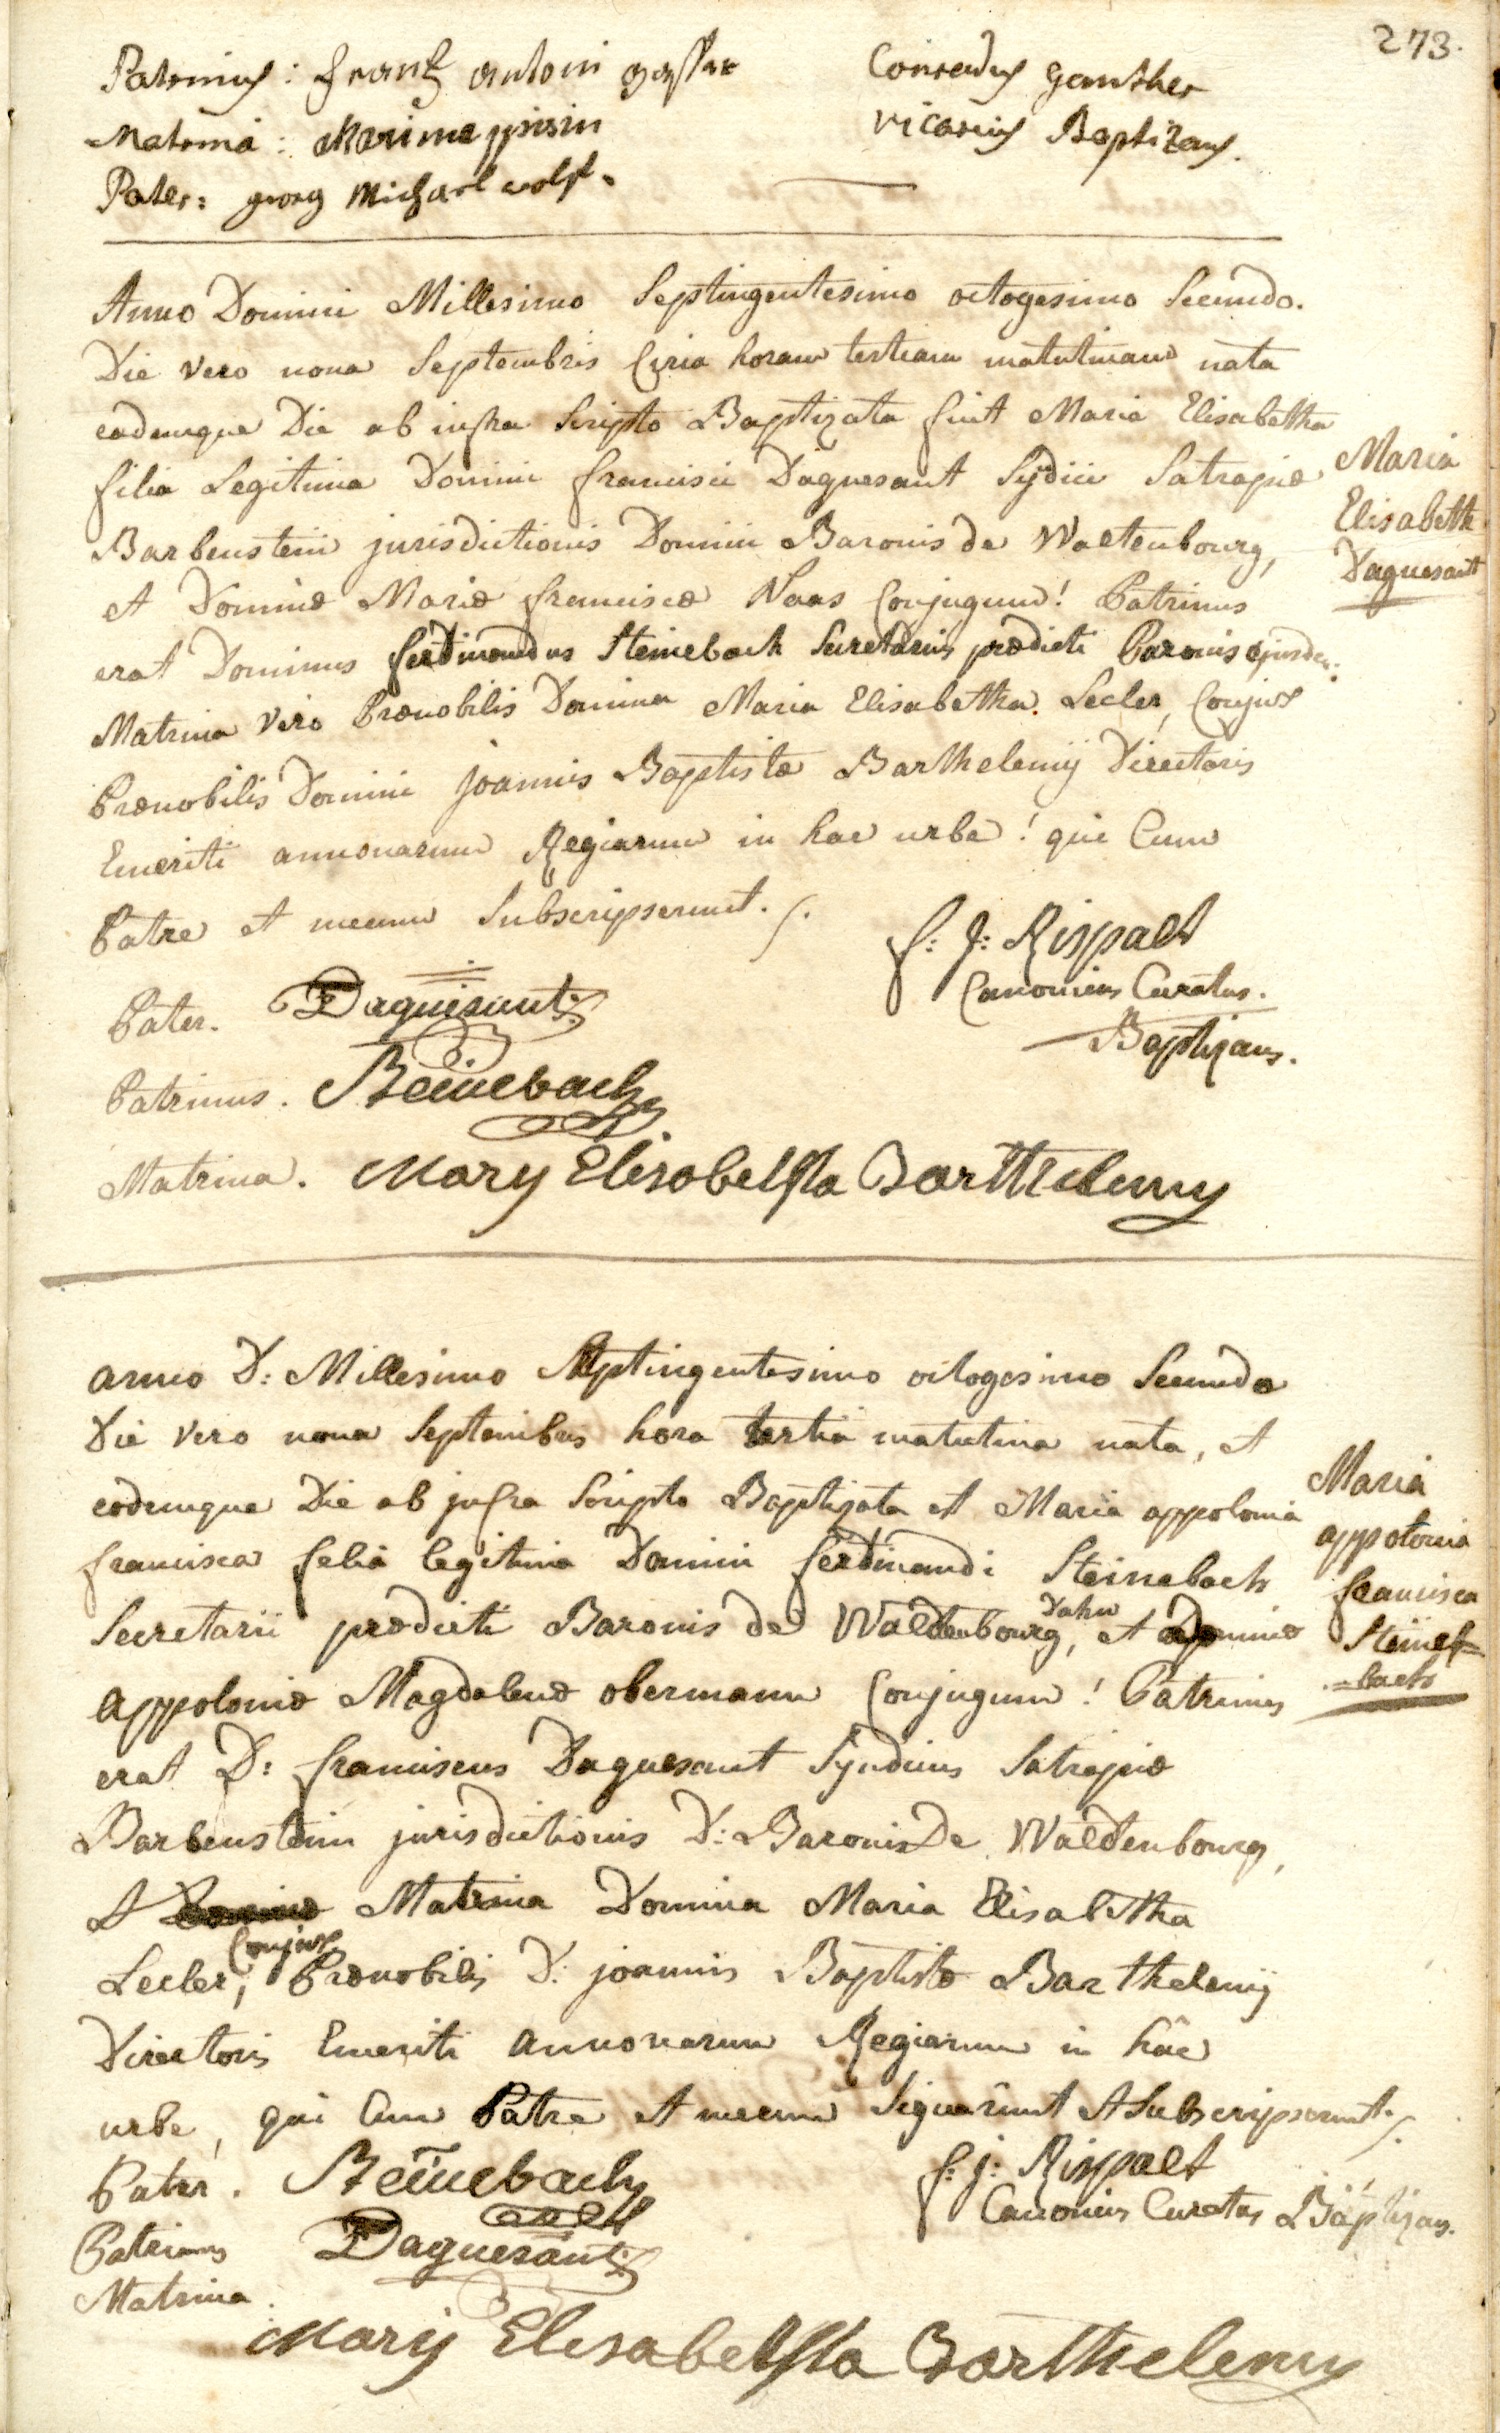 273.
Patrinus: frantz antoni
Matrina:
Pater: georg Michael wolff.
Conradus ganther
vicarius Baptizans.
Anno Domini Millesimo Septingentesimo octogesimo Secundo.
Die vero nona Septembris Circa horam tertiam matutinam nata
eademque Die ab infra Scripto Baptizata fuit Maria Elisabetha
filia Legitima Domini francisci Daguesant Sydici Satrapiæ
Barbenstein jurisdictionis Domini Baronis de Waltenbourg,
et Dominæ Mariæ franciscæ Naas Conjugum! Patrinus
erat Dominus ferdinandus Steinebach Secretarius prædicti Baronis ejusdem.
Matrina vero Prænobilis Domina Maria Elisabetha Lecler, Conjux
Prænobilis Domini joannis Baptistæ Barthelemij Directoris
Emeriti annonarum Regiarum in hac urbe! qui Cum
Patre et mecum Subscripserunt./.
Maria
Elisabeth
Daguesant
f: J: Rispalt
Canonicus Curatus.
Baptizans.
Pater. Daguesant
Patrinus. Steinebach
Matrina. Mary Elisabettha Barthelemy
anno D: Millesimo Septingentesimo octogesimo Secundo
Die vero nona Septembris hora tertia matutina nata, et
eodemque Die ab jnfra Scripto Baptizata et Maria appolonia
francisca felia legitima Domini ferdinandi Steinebach
Secretarii prædicti Baronis de Waldenbourg, Dahn et Dominæ
appoloniæ Magdalenæ obermann Conjugum! Patrinus
erat D: franciscus Daguesant Syndicus Satrapiæ
Barbenstein jurisdictionis D: Baronis De Waldenbourg,
et Matrina Domina Maria Elisabetha
Lecler, Conjux Prænobilis D: joannis Baptistæ Barthelemij
Directoris Emeriti annonarum Regiarum in hâc
urbe, qui Cum Patre et mecum Signarûnt et Subscripserunt./.
Maria
appolonia
francisca
Steineh=
=bach
Pater. Steinebach
Patrinus Daguesant
Matrina.
Marij Elisabettha Barthelemy
f: j: Rispalt
Canonicus Curatus Baptizans.